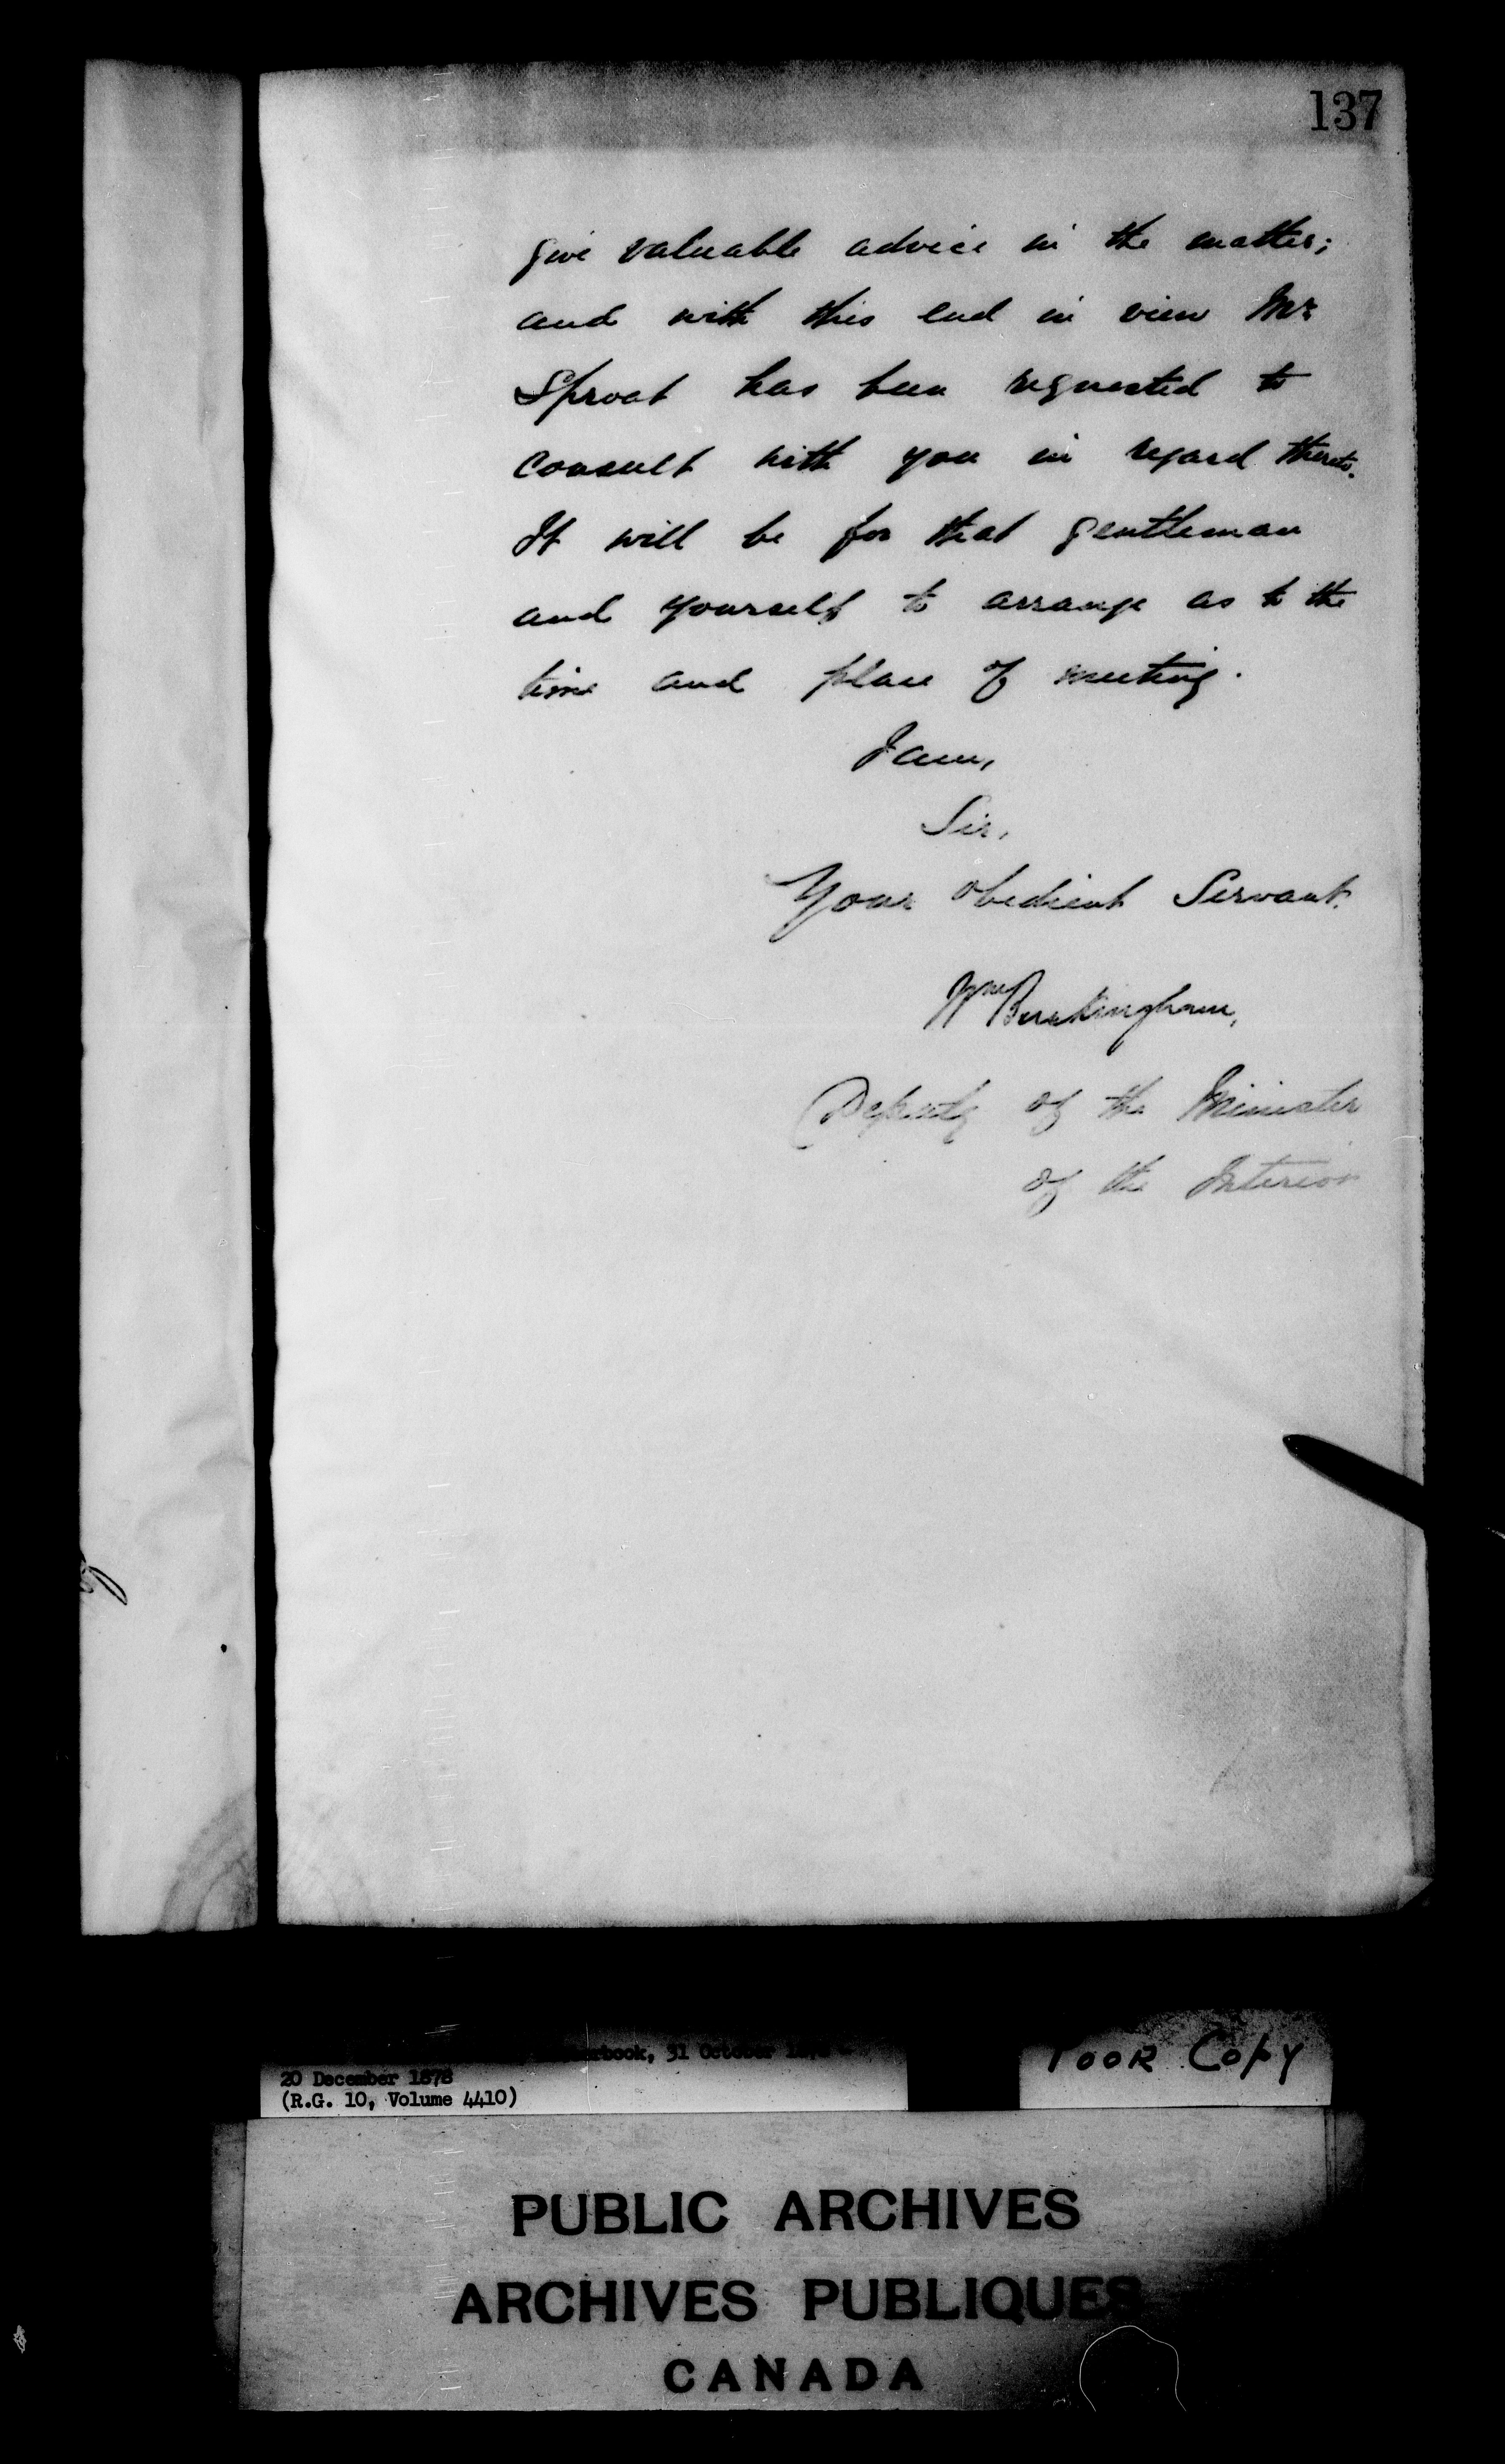 137
give valuable advice in the matter;
and with this end in view Mr
Sproat has been requested to
consult with you in regard thereto.
It will be for that gentleman
and yourself to arrange as to the
time and place of meeting.
I am,
Sir,
Your obedient Servant.
Wm Buckingham,
Deputy of the Minister
of the Interior
31 October
20 December 1878
(R.G. 10, Volume 4410)
POOR COPY
PUBLIC ARCHIVES
ARCHIVES PUBLIQUES
CANADA